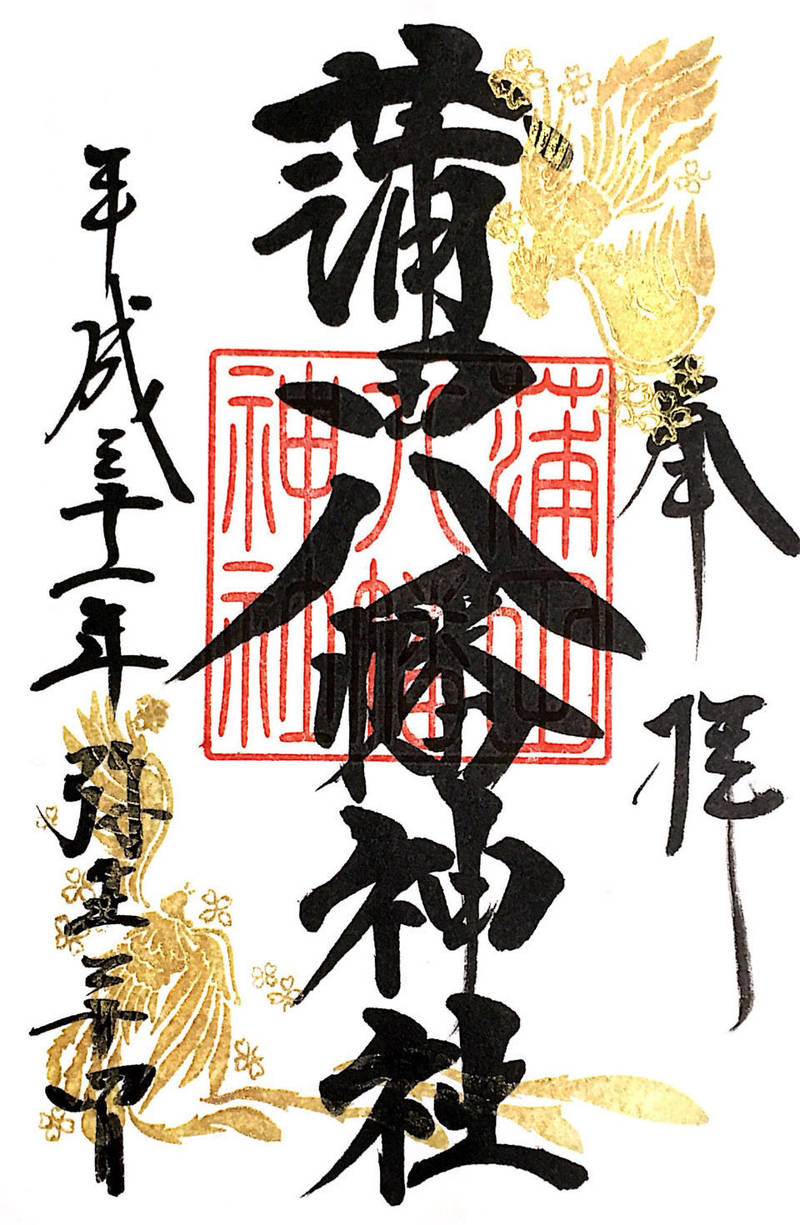 奉拝
蒲田八幡神社
平成三十一年弥生
蒲田
八幡
神社